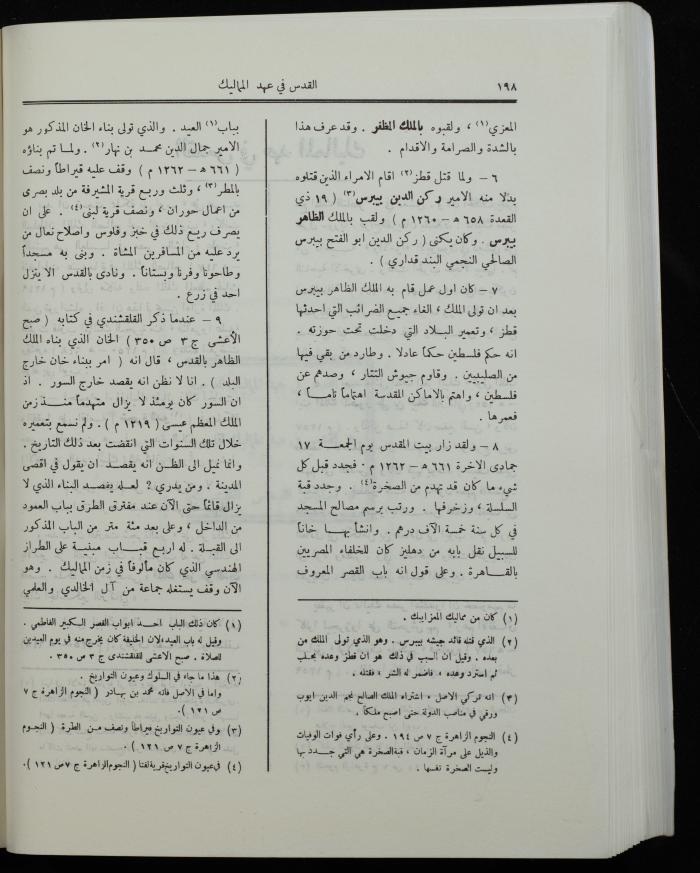 ١٩٨
القدس في عهد المماليك
المعزي(١) ، ولقبوه بالملك المظفر . وقد عرف هذا
بالشدة والصرامة والاقدام .
٦ – ولما قتل قطز(٢) اقام الامراء الذين قتلوه
بدلا منه الامير ركن الدين بيبرس(٣) ( ١٩ ذي
القعدة ٦٥٨ هـ – ١٢٦٠ م ) ولقب بالملك الظاهر
بيبرس . وكان يكنى ( ركن الدين ابو الفتح بيبرس
الصالحي النجمي البند قداري ) .
٧ – كان اول عمل قام به الملك الظاهر بيبرس
بعد ان تولى الملك ، الغاء جميع الضرائب التي احدثها
قطز ، وتعمير البلاد التي دخلت تحت حوزته .
انه حكم فلسطين حكماً عادلا . وطارد من بقي فيها
من الصليبيين . وقاوم جيوش التتار ، وصدهم عن
فلسطين ، واهتم بالاماكن المقدسة اهتماماً تاماً ،
فعمرها .
٨ – ولقد زار بيت المقدس يوم الجمعة ١٧
جمادى الاخرة ٦٦١ هـ – ١٢٦٢ م . فجدد قبل كل
شيء ما كان قد تهدم من الصخرة(٤) . وجدد قبة
السلسلة ، وزخرفها . ورتب برسم مصالح المسجد
في كل سنة خمسة الآف درهم . وانشأ بها خاناً
للسبيل نقل بابه من دهليز كان للخلفاء المصريين
بالقاهرة . وعلى قول انه باب القصر المعروف
(١) كان من مماليك المعز ايبك .
(٢) الذي قتله قائد جيشه بيبرس . وهو الذي تولى الملك من
بعده . وقيل ان السبب في ذلك هو ان قطز وعده بحلب
ثم استرد وعده ، فاضمر له الشر ، فقتله .
(٣) انه تركي الاصل ، اشتراه الملك الصالح نجم الدين ايوب
ورقي في مناصب الدولة حتى اصبح ملكاً .
(٤) النجوم الزاهرة ج ٧ ص ١٩٤ . وعلى رأي فوات الوفيات
والذيل على مرآة الزمان ، قبة الصخرة هي التي جددبها
وليست الصخرة نفسها .
بباب(١) العيد . والذي تولى بناء الخان المذكور هو
الامير جمال الدين محمد بن نهار(٢) . ولما تم بناؤه
( ٦٦١ هـ – ١٢٦٢ م ) وقف عليه قيراطاً ونصف
بالمطر(٣) ، وثلث وربع قرية المشيرفة من بلد بصرى
من اعمال حوران ، ونصف قرية لبنى(٤) . على ان
يصرف ريع ذلك في خبز وفلوس واصلاح نعال من
يرد عليه من المسافرين المشاة . وبنى به مسجداً
وطاحونا وفرنا وبستاناً . ونادى بالقدس الا ينزل
احد في زرع .
٩ – عندما ذكر القلقشندي في كتابه ( صبح
الأعشى ج ٣ ص ٣٥٠ ) الخان الذي بناه الملك
الظاهر بالقدس ، قال انه ( امر ببناء خان خارج
البلد ) . انا لا نظن انه يقصد خارج السور . اذ
ان السور كان يومئذ لا يزال متهدماً منذ زمن
الملك المعظم عيسى ( ١٢١٩ م ) . ولم نسمع بتعميره
خلال تلك السنوات التي انقضت بعد ذلك التاريخ .
وانما نميل الى الظن انه يقصد ان يقول في اقصى
المدينة . ومن يدري ؟ لعله يقصد البناء الذي لا
يزال قائماً حتى الآن عند مفترق الطرق بباب العمود
من الداخل ، وعلى بعد مئة متر من الباب المذكور
الى القبلة . له اربع قباب مبنية على الطراز
الهندسي الذي كان مألوفاً في زمن المماليك . وهو
الآن وقف يستغله جماعة من آل الخالدي والعلمي
(١) كان ذلك الباب احد ابواب القصر الكبير الفاطمي .
وقيل له باب العيد ، لان الخليفة كان يخرج منه في يوم العيدين
للصلاة . صبح الاعشى للقلقشندي ج ٣ ص ٣٥٠ .
(٢) هذا ما جاء في السلوك وعيون التواريخ .
واما في الاصل فانه محمد بن بهادر ( النجوم الزاهرة ج ٧
ص ١٢١ ) .
(٣) وفي عيون التواريخ قيراطاً ونصف من الطرة ( النجوم
الزاهرة ج ٧ ص ١٢١ ) .
(٤) في عيون التواريخ قرية لفتا ( النجوم الزاهرة ج ٧ ص ١٢١ ).